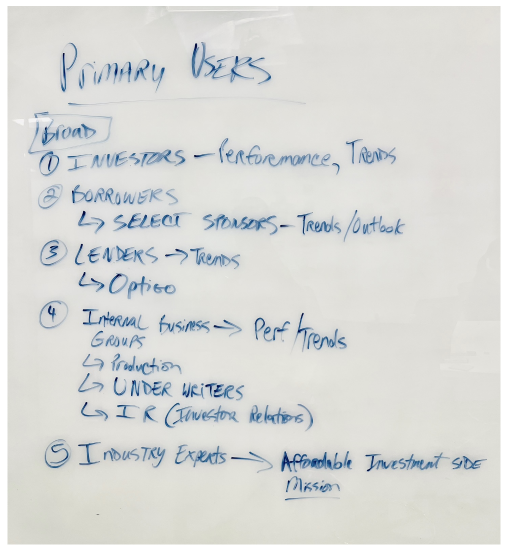 PRIMARY USERS
Broad
① INVESTORS — Performance, Trends
② BORROWERS
↳ SELECT SPONSORS — Trends/Outlook
③ LENDERS → Trends
↳ Optigo
④ Internal Business → Perf/Trends
GROUPS
↳ Production
↳ UNDER WRITERS
↳ IR (Investor Relations)
⑤ Industry Experts → Affordable Investment SIDE
Mission